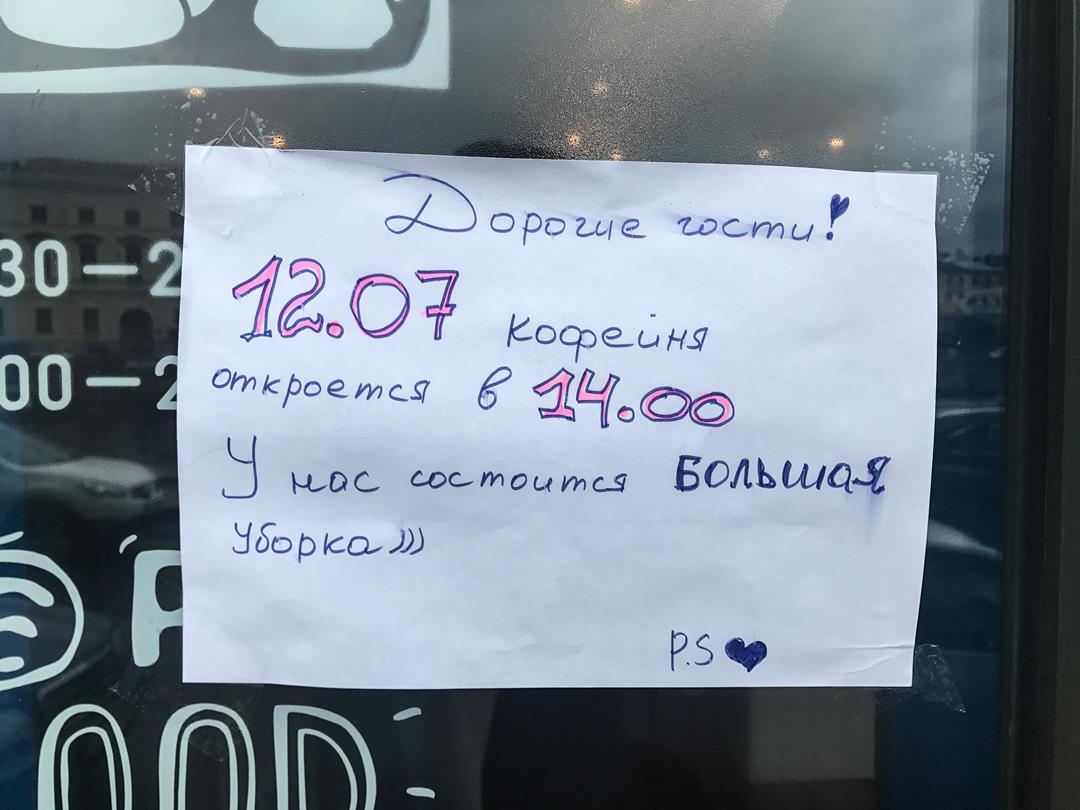 Дорогие гости!
12.07 кофейня
откроется в 14.00
У нас состоится БОЛЬШАЯ
уборка)))
P.S ♥
30–2
00–2